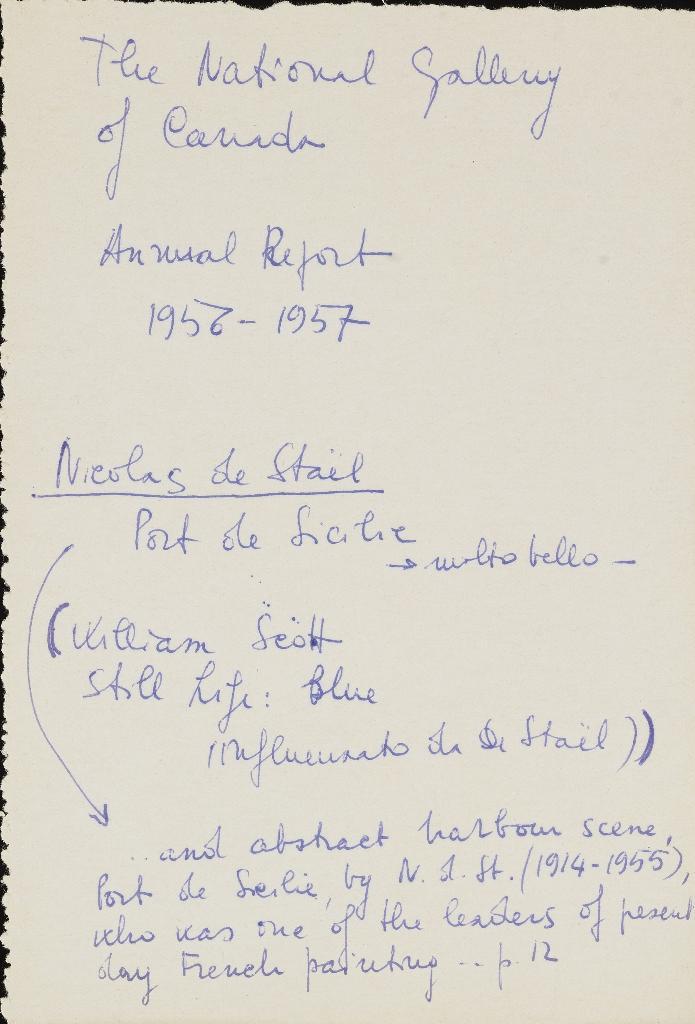 The National Gallery
of Canada
Annual Report
1956-1957
Nicolas de Staël
Port de Sicilie
→ molto bello -
(William Scott
Still Life: Blue
(influenzato da De Staël))
..and abstract harbour scene,
Port de Sicilie, by N. d. St. (1914-1955),
who was one of the leaders of present
day French painting .. p. 12